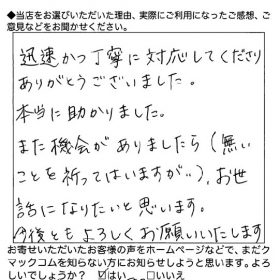 ◆当店をお選びいただいた理由、実際にご利用になったご感想、ご
意見などをお聞かせください。
迅速かつ丁寧に対応してくださり
ありがとうございました。
本当に助かりました。
また機会がありましたら（無い
ことを祈ってはいますが‥）、お世
話になりたいと思います。
今後ともよろしくお願いいたします
お寄せいただいたお客様の声をホームページなどで、まだク
マックコムを知らない方にお知らせしようと思います。よろ
しいでしょうか？ ☑はい ☐いいえ